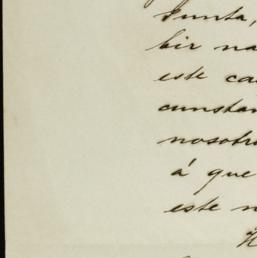 Junta,
bir na
este ca
cunstan
nosotr
á que
este n